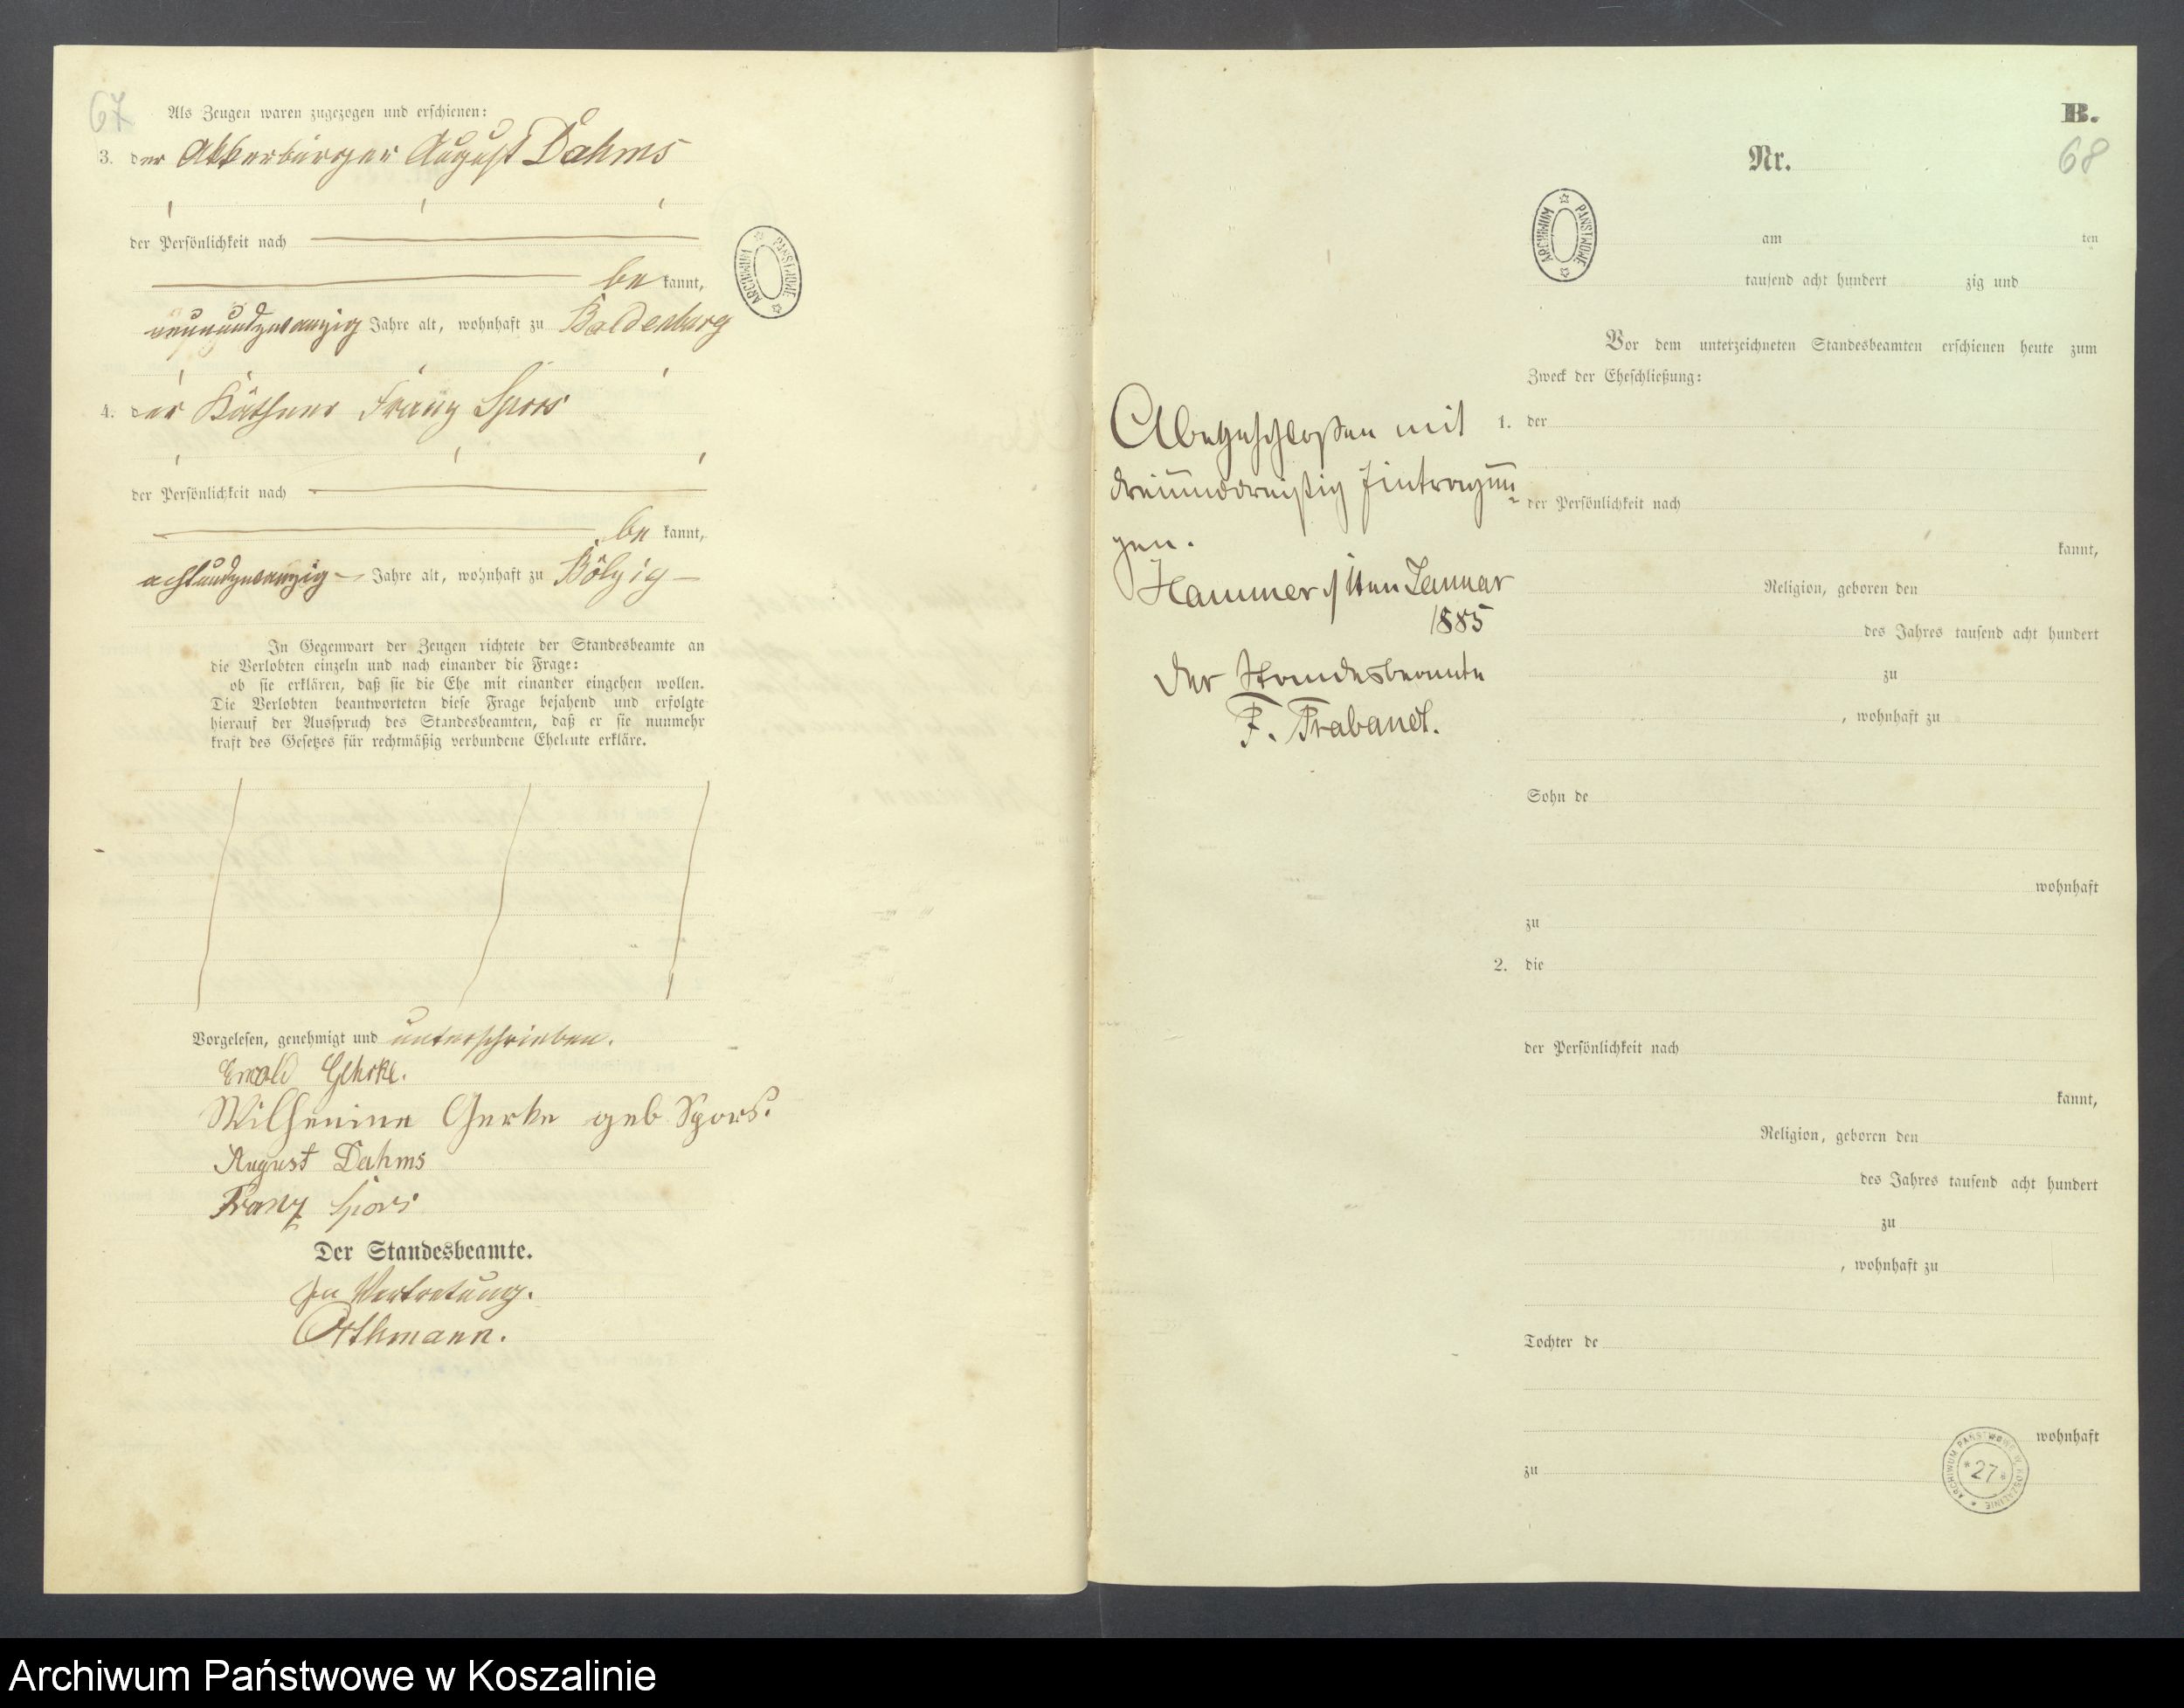 67
Als Zeugen waren zugezogen und erschienen:
3. der Ackerbürger August Dahms
der Persönlichkeit nach
be kannt,
neunundzwanzig Jahre alt, wohnhaft zu Baldenburg
4. der Käthner Franz Spors
der Persönlichkeit nach
be kannt,
achtundzwanzig Jahre alt, wohnhaft zu Bölzig
In Gegenwart der Zeugen richtete der Standesbeamte an
die Verlobten einzeln und nach einander die Frage:
ob sie erklären, daß sie die Ehe mit einander eingehen wollen.
Die Verlobten beantworteten diese Frage bejahend und erfolgte
hierauf der Ausspruch des Standesbeamten, daß er sie nunmehr
kraft des Gesetzes für rechtmäßig verbundene Eheleute erkläre.
Vorgelesen, genehmigt und unterschrieben.
Ewald Gehrke.
Wilhemine Gerke geb Spors.
August Dahms
Franz Spors
Der Standesbeamte.
In Vertretung.
Othmann.
ARCHIWUM PAŃSTWOWE
B.
68
Nr.
ARCHIWUM PAŃSTWOWE
am ten
tausend acht hundert zig und
Vor dem unterzeichneten Standesbeamten erschienen heute zum
Zweck der Eheschließung:
1. der
der Persönlichkeit nach
kannt,
Religion, geboren den
des Jahres tausend acht hundert
zu
, wohnhaft zu
Sohn de
wohnhaft
zu
2. die
der Persönlichkeit nach
kannt,
Religion, geboren den
des Jahres tausend acht hundert
zu
, wohnhaft zu
Tochter de
wohnhaft
zu
Abgeschloßen mit
dreiunddreißig Eintragun-
gen.
Hammer Januar
1885
Der Standesbeamte
F. Brabandt.
ARCHIWUM PAŃSTWOWE W KOSZALINIE
*27*
Archiwum Państwowe w Koszalinie